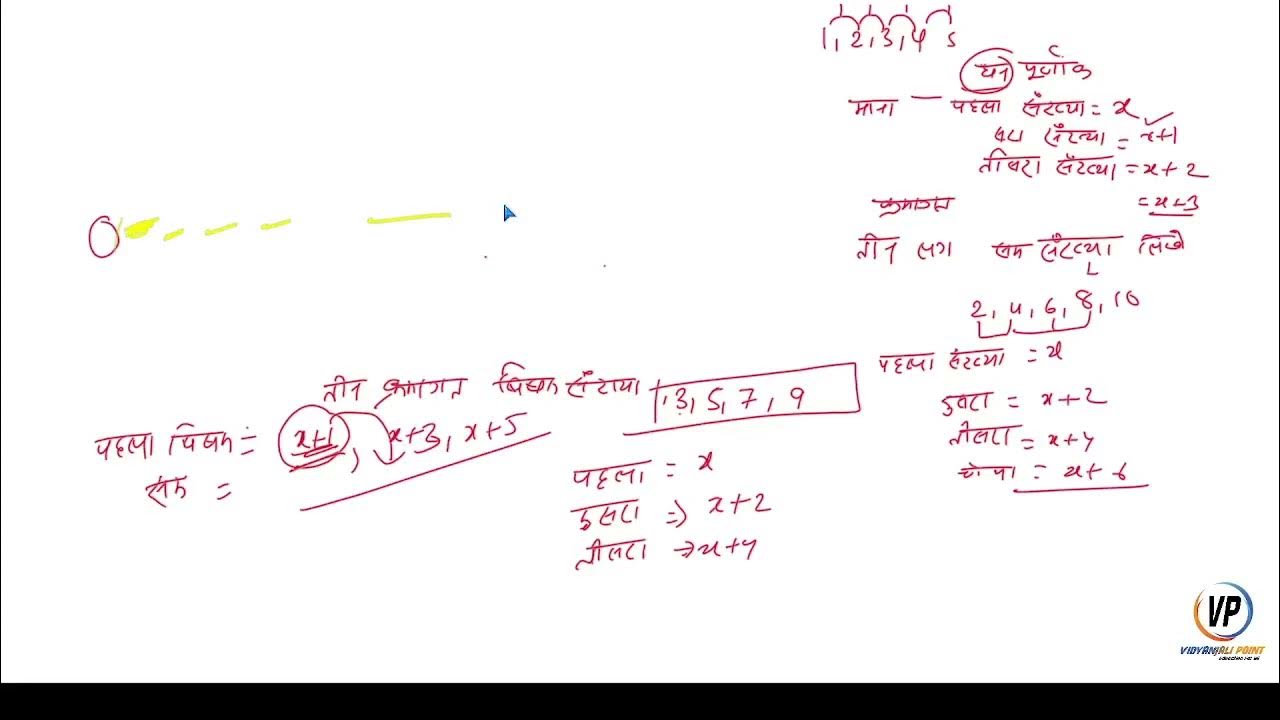 1, 2, 3, 4 5
धन पूर्णांक
माना — पहला संख्या = x
संख्या = x+1
तीसरा संख्या = x+2
क्रमागत = x+3
तीन लग सम संख्या लिखो
2, 4, 6, 8, 10
पहला संख्या = x
दुसरा = x+2
तीसरा = x+4
चौथा = x+6
तीन क्रमागत विषम संख्या 1, 3, 5, 7, 9
पहला विषम = x+1, x+3, x+5
सम =
पहला = x
दुसरा ⇒ x+2
तीसरा → x+4
VP
VIDYANJALI POINT